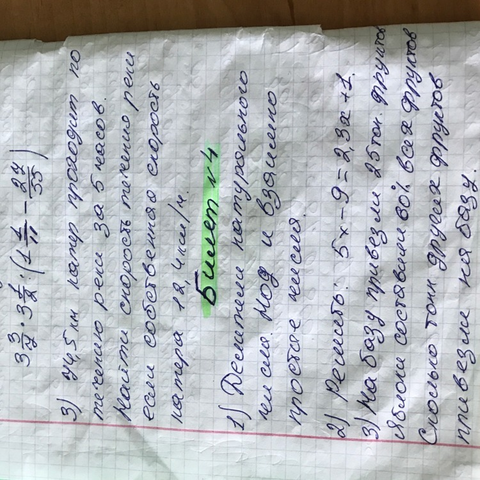 3) 74,5 км катер проходит по
течению реки за 5 часов.
Найти скорость течения реки
если собственная скорость
катера 12,4 км/ч.
Билет №4
1) Делители натурального
числа НОД и взаимно
простые числа.
2) Решить: 5x-9=2,3x+1.
3) На базу привезли 25 тон. фруктов
Яблоки составили 60% всех фруктов
Сколько тонн других фруктов
привезли на базу.